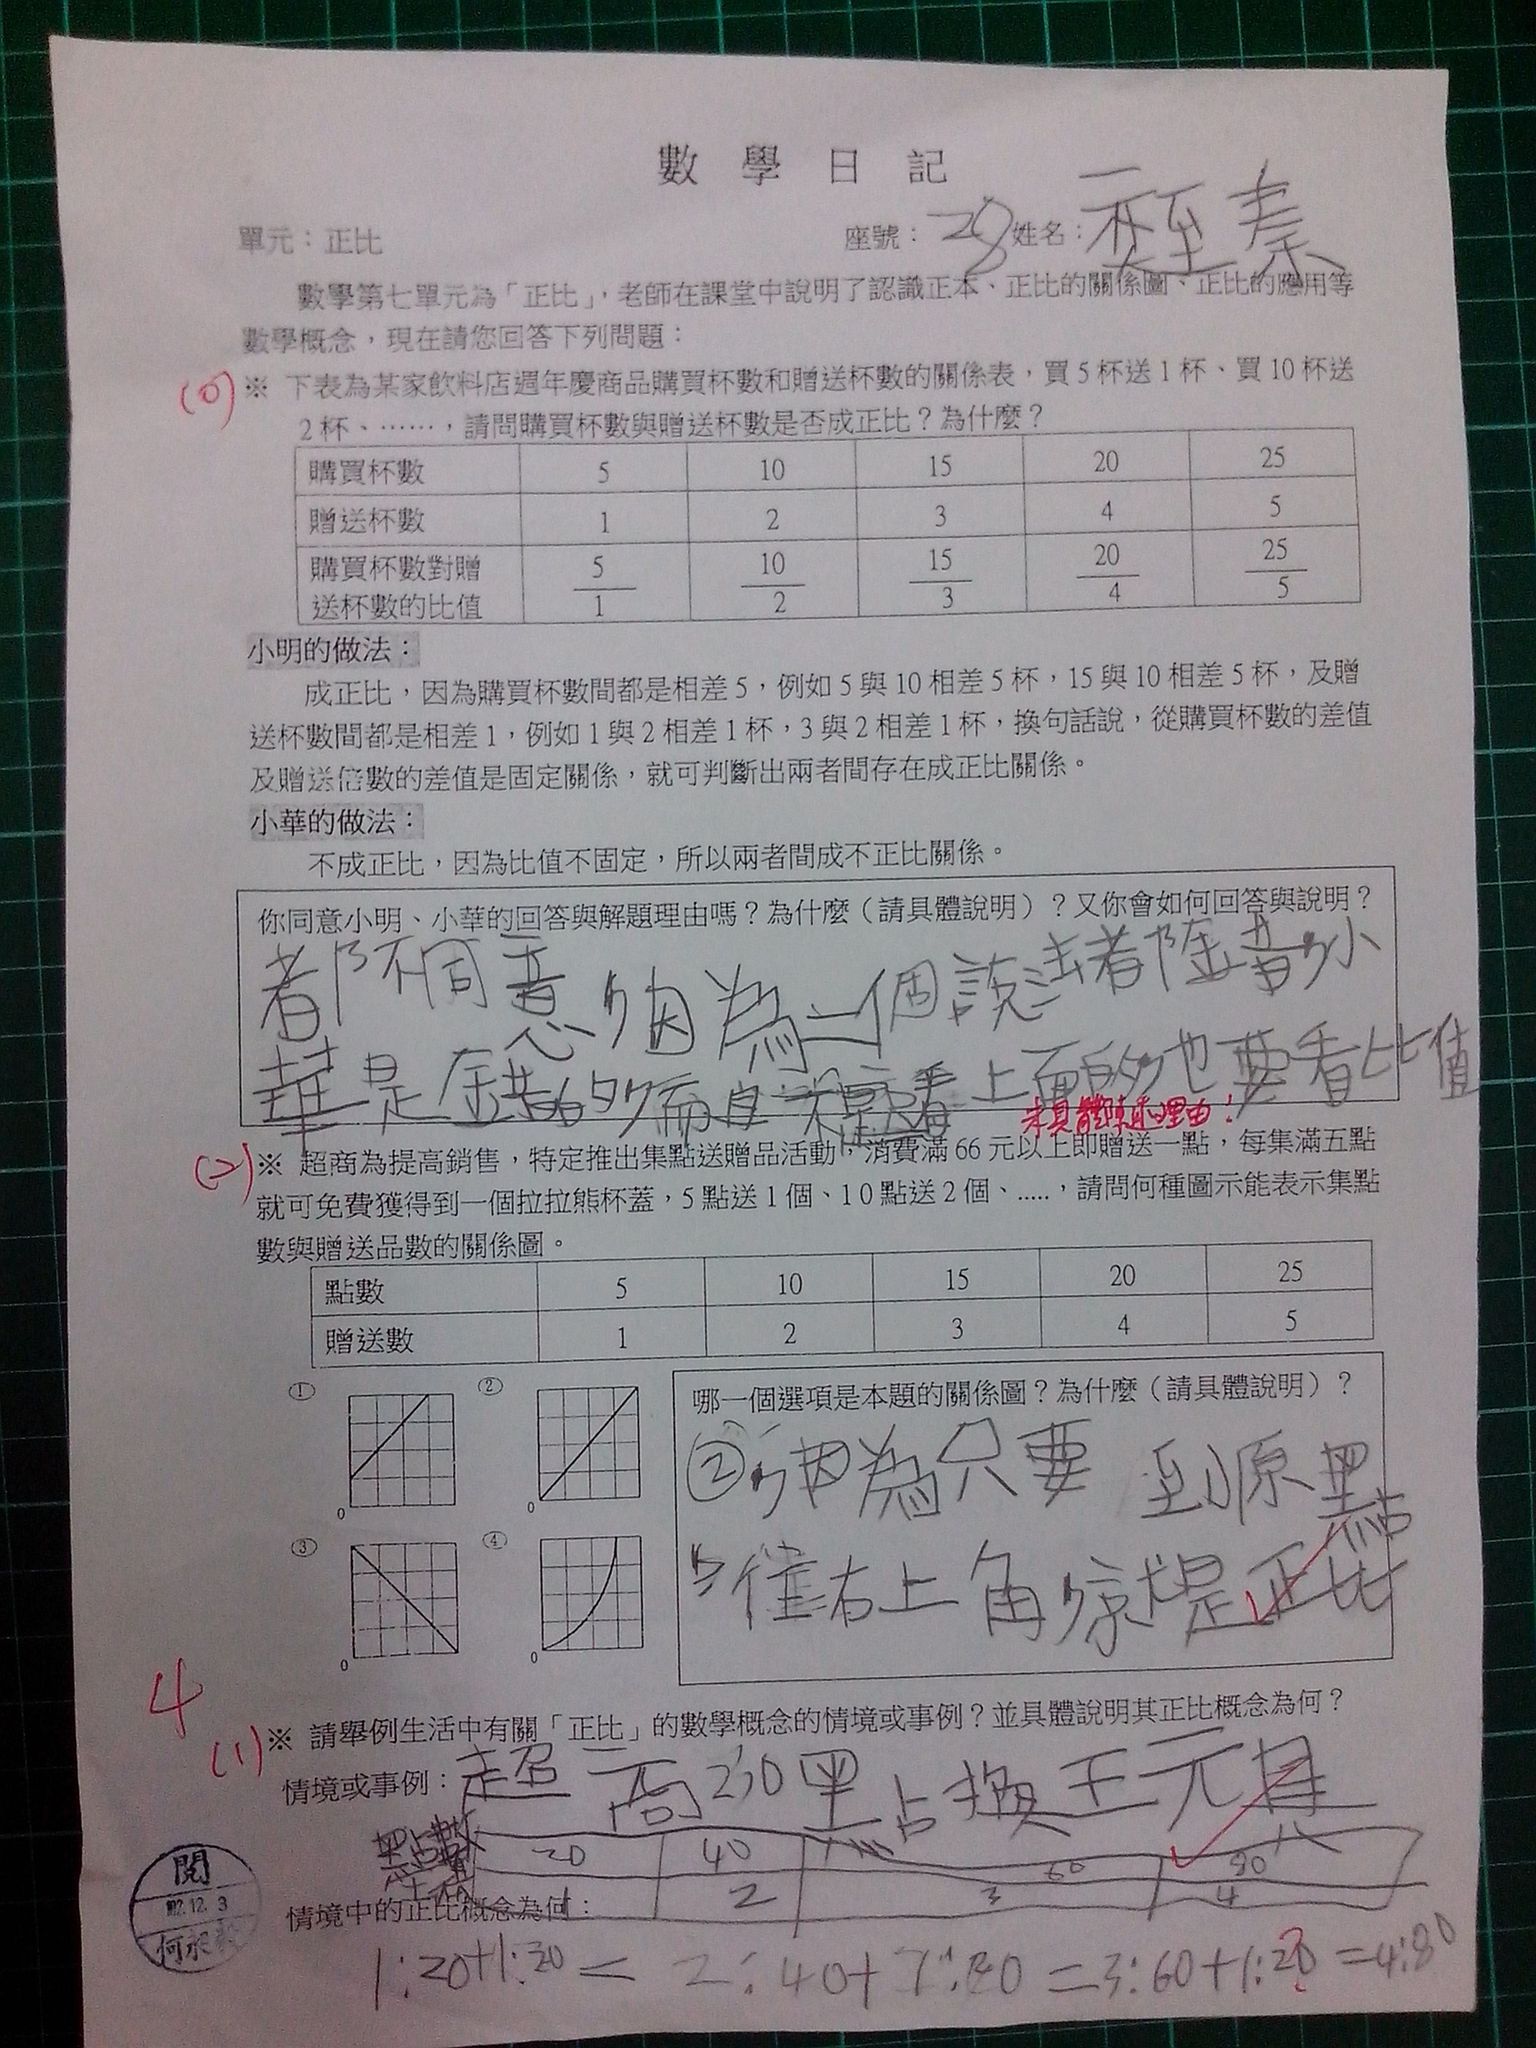 數學日記
單元：正比 座號：28 姓名：
數學第七單元為「正比」，老師在課堂中說明了認識正本、正比的關係圖、正比的應用等
數學概念，現在請您回答下列問題：
(0) ※ 下表為某家飲料店週年慶商品購買杯數和贈送杯數的關係表，買5杯送1杯、買10杯送
2杯、……，請問購買杯數與贈送杯數是否成正比？為什麼？
購買杯數 5 10 15 20 25
贈送杯數 1 2 3 4 5
購買杯數對贈 5 10 15 20 25
送杯數的比值 1 2 3 4 5
小明的做法：
成正比，因為購買杯數間都是相差5，例如5與10相差5杯，15與10相差5杯，及贈
送杯數間都是相差1，例如1與2相差1杯，3與2相差1杯，換句話說，從購買杯數的差值
及贈送倍數的差值是固定關係，就可判斷出兩者間存在成正比關係。
小華的做法：
不成正比，因為比值不固定，所以兩者間成不正比關係。
你同意小明、小華的回答與解題理由嗎？為什麼（請具體說明）？又你會如何回答與說明？
都不同意，因為一個說法都錯，小
華是錯的，而且 看上面的，也要看比值
未具體陳述理由！
(2) ※ 超商為提高銷售，特定推出集點送贈品活動，消費滿66元以上即贈送一點，每集滿五點
就可免費獲得到一個拉拉熊杯蓋，5點送1個、10點送2個、.....，請問何種圖示能表示集點
數與贈送品數的關係圖。
點數 5 10 15 20 25
贈送數 1 2 3 4 5
① ②
0 0
③ ④
0 0
哪一個選項是本題的關係圖？為什麼（請具體說明）？
②，因為只要 到原點
往右上角，就是正比
4
(1) ※ 請舉例生活中有關「正比」的數學概念的情境或事例？並具體說明其正比概念為何？
情境或事例：超商20點換
點數 20 40 60 80
1 2 3 4
情境中的正比概念為何：
1:20+1:20= 2:40+1:20=3:60+1:20=4:80
?
閱
112.12.3